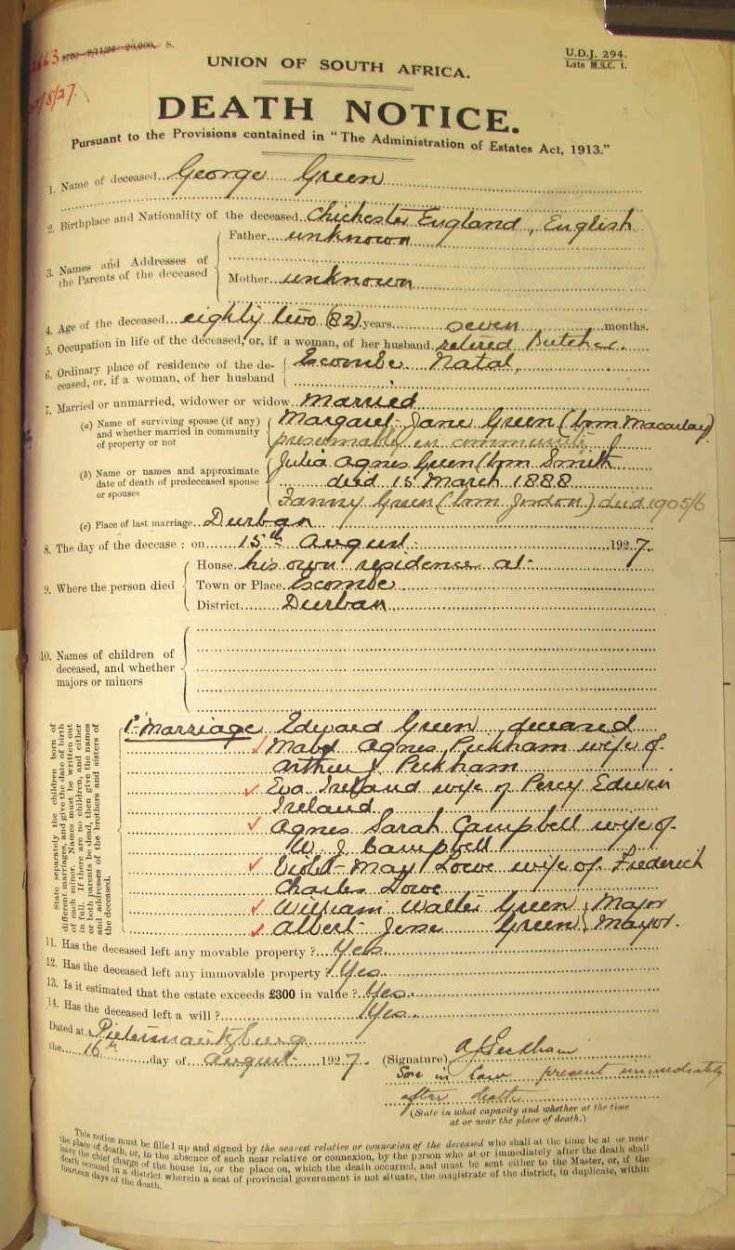 UNION OF SOUTH AFRICA.
U.D.J. 294.
Late M.S.C. 1.
DEATH NOTICE.
Pursuant to the Provisions contained in "The Administration of Estates Act, 1913."
1. Name of deceased George Green
2. Birthplace and Nationality of the deceased Chichester England, English
3. Names and Addresses of the Parents of the deceased
Father unknown
Mother unknown
4. Age of the deceased eighty two (82) years seven months.
5. Occupation in life of the deceased, or, if a woman, of her husband retired Butcher.
6. Ordinary place of residence of the de-
ceased, or, if a woman, of her husband
Escombe Natal
7. Married or unmarried, widower or widow Married
(a) Name of surviving spouse (if any)
and whether married in community
of property or not
Margaret Jane Green (born Macaulay)
presumable in community
(b) Name or names and approximate
date of death of predeceased spouse
or spouses
Julia Agnes Green (born Smith
died 15 March 1888
Fanny Green (born Jordon) died 1905/6
(c) Place of last marriage Durban
8. The day of the decease: on 15th August 1927.
9. Where the person died
House his own residence at
Town or Place Escombe
District Durban
10. Names of children of
deceased, and whether
majors or minors
State separately the children born of
different marriages, and give the date of birth
of each minor. Names must be written out
in full. If there are no children, and either
or both parents be dead, then give the names
and addresses of the brothers and sisters of
the deceased.
1st Marriage Edward Green deceased
Mabel Agnes Peckham wife of
Arthur J. Peckham
Eva Ireland wife of Percy Edwin
Ireland
Agnes Sarah Campbell wife of
W. J. Campbell
Violet May Lowe wife of Frederick
Charles Lowe
William Walter Green Major
Albert Jesse Green Mayor.
11. Has the deceased left any movable property? Yes.
12. Has the deceased left any immovable property? Yes.
13. Is it estimated that the estate exceeds £300 in value? Yes.
14. Has the deceased left a will? Yes.
Dated at Pietermaritzburg
the 16th day of August 1927.
(Signature) A J Peckham
Son in law present immediately
after death
(State in what capacity and whether at the time
at or near the place of death.)
This notice must be filled up and signed by the nearest relative or connexion of the deceased who shall at the time be at or near
the place of death, or, in the absence of such near relative or connexion, by the person who at or immediately after the death shall
have the chief charge of the house in, or the place on, which the death occurred, and must be sent either to the Master, or, if the
death occured in a district wherein a seat of provincial government is not situate, the magistrate of the district, in duplicate, within
fourteen days of the death.